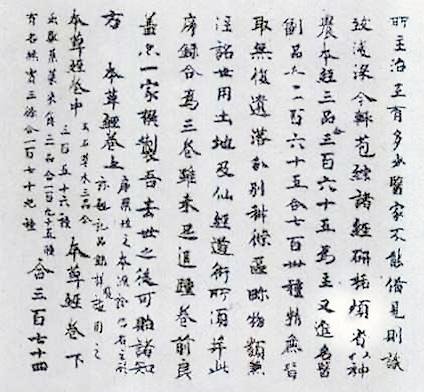 所主治互有多少醫家不能備見則識
致淺深今輒苞綜諸經研括煩省以神
農本經三品合三百六十五為主又進名醫
副品亦三百六十五合七百卅種精麁皆
取無復遺落分別科條區畛物類兼
注詺世用土地及仙經道術所須并此
序錄合為三卷雖未足追踵卷前良
蓋亦一家撰製吾去世之後可貽諸知
方 本草經卷上 序藥性之本源詮病名之形
診題記品錄詳覽施用之
本草經卷中 玉石草木三品合
三百五十六種 本草經卷下
虫獸菓菜米食三品合一百九十五種
有名無實三條合一百七十九種 合三百七十四